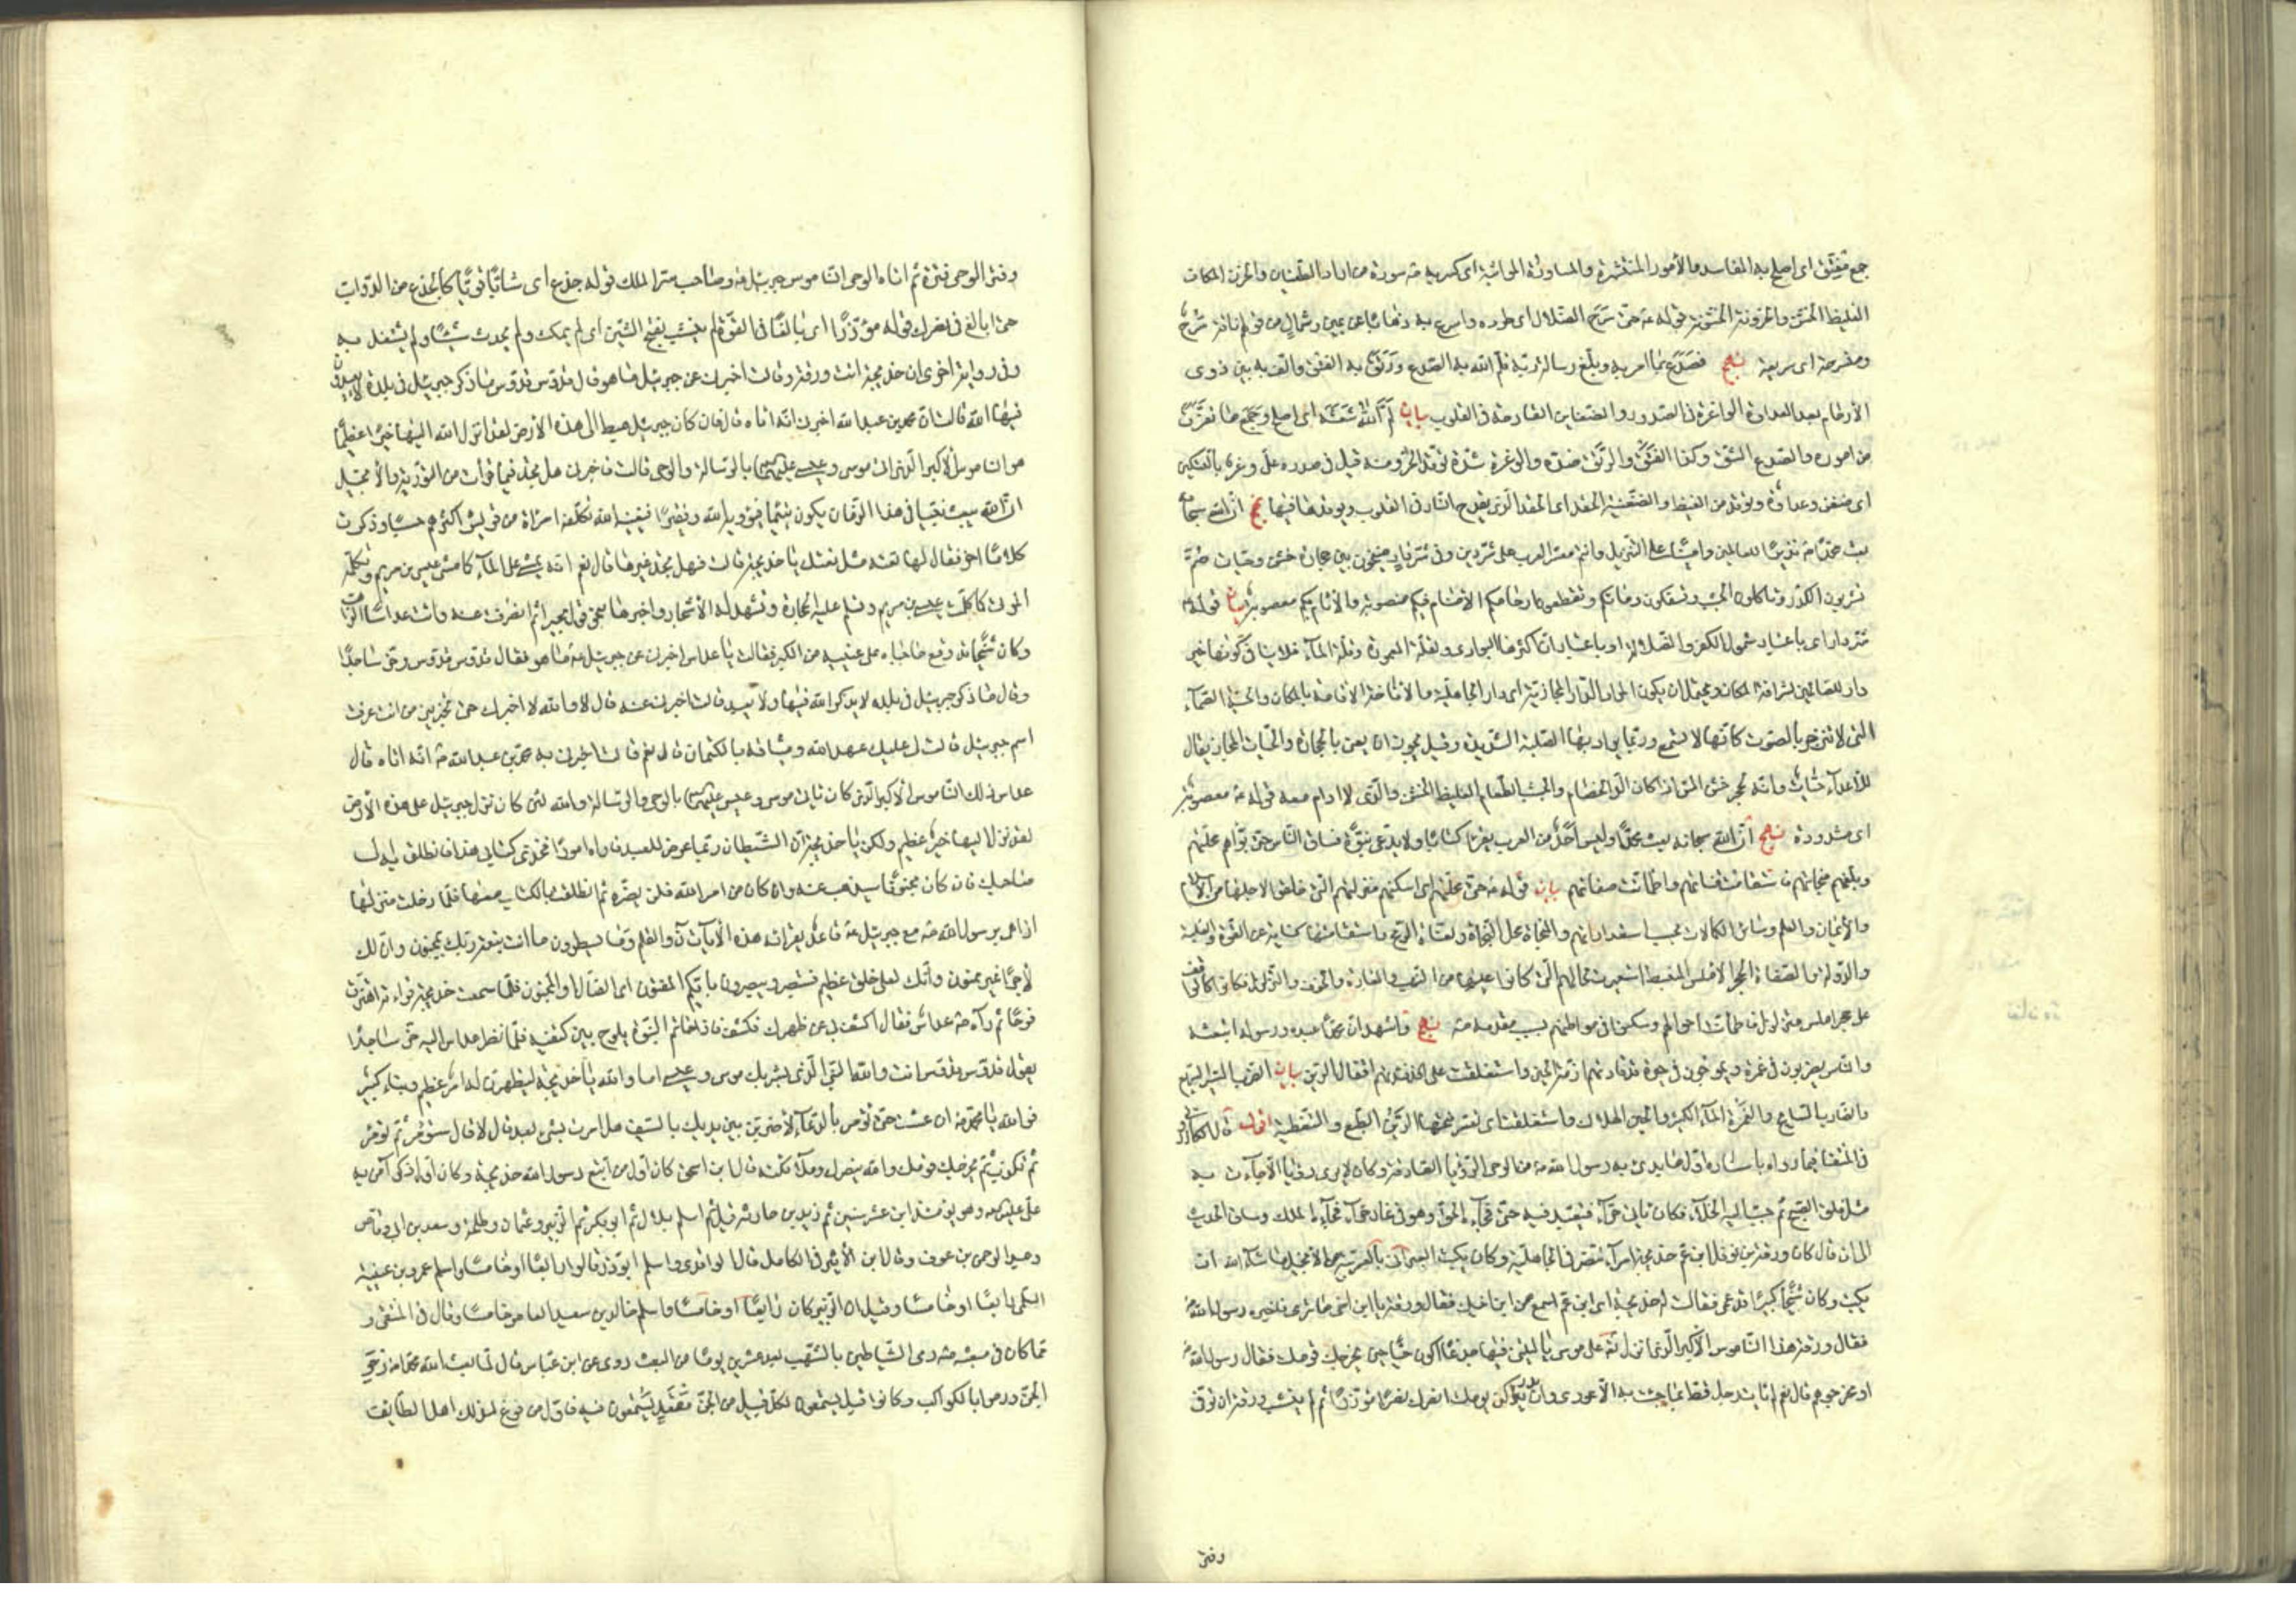 جمع مفتق اى اصلح به المفاسد والأمور المنتشرة والمساورة المواثبة اى كسر به سورة من اراد الطغيان والحزن المكان
الغليظ الخشن والحزونة الخشونة قوله حتى سرّح الضلال اى طرده واسرع به ذهابا عن يمين وشمال من قولهم ناقة سرح
ومنسرحة اى سريعة نهج فصدع بما امر به وبلّغ رسالة ربه فلمّ الله به الصدع ورتق به الفتق والف به بين ذوى
الأرحام بعد العداوة الواغرة فى الصدور والضغاين القادحة فى القلوب بيان لمّ الله شعثه اى اصلح وجمع ما تفرّق
من اموره والصدع الشق وكذا الفتق والرتق ضده والوغرة شدة توقد الحر ومنه قيل فى صدره علىّ وغر بالتسكين
اى ضغن وعداوة وتوقد من الغيظ والضغينة الحقد اى الحقد الذى يقدح النار فى القلوب ويوقدها فيها نهج ان الله سبحانه
بعث محمدا نذيرا للعالمين وامينا على التنزيل وانتم معشر العرب على شر دين وفى شر دار منيخون بين حجارة خشن وحيات صمّ
تشربون الكدر وتاكلون الجشب وتسفكون دماءكم وتقطعون ارحامكم الاصنام فيكم منصوبة والآثام بكم معصوبة بيان قوله
شر دار اى باعتبار شمول الكفر والضلالة او باعتبار ان اكثرها البوادى ولقلة المعمورة وقلة الماء فلا ينافى كونها خير
دار للصالحين لشرافة المكان ويحتمل ان يكون المراد الدار المجازية اى دار الجاهلية والاناخة الاقامة بالمكان والحية الصمّاء
التى لا تنزجر بالصوت كانها لا تسمع وربما يراد بها الصلبة الشديدة وقيل يجوز ان يعنى بالحجارة والحيات المجاز يقال
للأعداء حيات وانه لحجر خشن المس اذا كان الد الخصام والجشب الطعام الغليظ الخشن والذى لا ادام معه قوله معصوبة
اى مشدودة نهج ان الله سبحانه بعث محمدا وليس احد من العرب يقرأ كتابا ولا يدّعى نبوة فساق الناس حتى بوّاهم محلتهم
وبلّغهم منجاتهم فاستقامت قناتهم واطمأنت صفاتهم بيان قوله حتى محلتهم اى اسكنهم منزلتهم التى خلقوا لاجلها من الاسلام
والأيمان والعلم وسائر الكمالات بحسب استعداداتهم والمنجاة محل النجاة والقناة الرمح واستقامتها كناية عن القوة والغلبة
والدولة والصفاة الحجر الاملس المنبسط استعيرت لحالهم التى كانوا عليها من النهب والغارة والخوف والتزلزل فكانوا كالواقف
على حجر املس متزلزل فاطمأنت احوالهم وسكنوا فى مواطنهم بسبب مقدمه نهج واشهد ان محمدا عبده ورسوله ابتعثه
والناس يضربون فى غمرة ويموجون فى حيرة قد قادتهم ازمّة الحين واستغلقت على افئدتهم اقفال الرين بيان الضرب السير السريع
والضارب السابح والغمرة الماء الكثير والحين الهلاك واستغلقت اى تعسر فتحها الرين الطبع والتغطية اقول قال الكازرونى
فى المنتقى فيما رواه باسناده اول ما بدئ به رسول الله من الوحى الرؤيا الصادقة وكان لا يرى رؤيا الّا جاءت به
مثل فلق الصبح ثم حبب اليه الخلاء فكان ياتى حراء فيتعبد فيه حتى فجاءه الحق وهو فى غار حراء فجاءه الملك وساق الحديث
الى ان قال كان ورقة بن نوفل ابن عم خديجة امرأ تنصر فى الجاهلية وكان يكتب العبرانى بالعربية من الانجيل ما شاء الله ان
يكتب وكان شيخا كبيرا قد عمى فقالت له خديجة اى ابن عم اسمع من ابن اخيك فقال ورقة يا ابن اخى ما ترى فاخبره رسول الله
فقال ورقة هذا الناموس الأكبر الذى انزل الله على موسى يا ليتنى فيها جذعا اكون حيا حين يخرجك قومك فقال رسول الله
او مخرجى هم قال نعم لم يات رجل قط بما جئت به الّا عودى وان يدركنى يومك انصرك نصرا مؤزرا ثم لم ينشب ورقة ان توفى
وفتر
وفتر الوحى فترة ثم اتاه الوحى الناموس جبرئيل وصاحب سر الملك قوله جذع اى شابا قويا كالجذع من الدواب
حتى ابالغ فى نصرك قوله مؤزرا اى بالغا فى القوة لم ينشب بفتح الشين اى لم يمكث ولم يحدث شيئا ولم يشتغل به
وفى رواية اخرى ان خديجة اتت ورقة وقالت اخبرنى عن جبرئيل ما هو قال قدوس قدوس ما ذكر جبرئيل فى بلدة لا يعبدون
فيها الله قالت ان محمد بن عبد الله اخبرنى انه اتاه قال فان كان جبرئيل هبط الى هذه الأرض لقد انزل الله اليها خيرا عظيما
هو الناموس الاكبر الذى اتى موسى وعيسى عليهما السلام بالرسالة والوحى قالت فاخبرنى هل تجد فيما قرأت من التورية والأنجيل
ان الله يبعث نبيا فى هذا الزمان يكون يتيما فيؤويه الله وفقيرا فيغنيه الله تكفّله امرأة من قريش اكثرهم حسبا وذكرت
كلاما اخر فقال لها نعته مثل نعتك يا خديجة قالت فهل تجد غيرها قال نعم انه يمشى على الماء كما مشى عيسى بن مريم وتكلّمه
الموتى كما كلمت عيسى بن مريم وتسلم عليه الحجارة وتشهد له الأشجار واخبرها بنحو قول بحيرا ثم انصرفت عنه واتت عداسا الراهب
وكان شيخا قد وقع حاجباه على عينيه من الكبر فقالت يا عداس اخبرنى عن جبرئيل ما هو فقال قدوس قدوس وخرّ ساجدا
وقال ما ذكر جبرئيل فى بلدة لا يذكر الله فيها ولا يعبد قالت اخبرنى عنه قال لا والله لا اخبرك حتى تخبرينى من اين عرفت
اسم جبرئيل قالت لى عليك عهد الله وميثاقه بالكتمان قال نعم قالت اخبرنى به محمد بن عبد الله انه اتاه قال
عداس ذلك الناموس الأكبر الذى كان ياتى موسى وعيسى عليهما السلام بالوحى والرسالة والله لئن كان نزل جبرئيل على هذه الأرض
لقد نزل اليها خير عظيم ولكن يا خديجة ان الشيطان ربما عرض للعبد فاراه امورا فخذى كتابى هذا فانطلقى به الى
صاحبك فان كان مجنونا سيذهب عنه وان كان من امر الله فلن يضره ثم انطلقت بالكتاب معها فلما دخلت منزلها
اذا هى برسول الله مع جبرئيل قاعد يقرئه هذه الأيات ن والقلم وما يسطرون ما انت بنعمة ربك بمجنون وان لك
لأجرا غير ممنون وانك لعلى خلق عظيم فستبصر ويبصرون بايّكم المفتون اى الضال او المجنون فلما سمعت خديجة قراءته اهتزّت
فرحا ثم رآه عداس فقال اكشف لى عن ظهرك فكشف فاذا خاتم النبوة يلوح بين كتفيه فلما نظر عداس اليه خرّ ساجدا
يقول قدوس قدوس انت والله النبى الذى بشر بك موسى وعيسى اما والله يا خديجة ليظهرن له امر عظيم ونباء كبير
فوالله يا محمد ان عشت حتى تؤمر بالدعاء لأضربن بين يديك بالسيف هل امرت بشئ بعد قال لا قال ستؤمر ثم تؤمر
ثم تكذب ثم يخرجك قومك والله ينصرك وملائكته قال ابن اسحق كان اول من اتبع رسول الله خديجة وكان اول ذكر آمن به
على عليه السلام وهو يومئذ ابن عشر سنين ثم زيد بن حارثة قيل ثم اسلم بلال ثم ابو بكر ثم الزبير وعثمان وطلحة وسعد بن ابى وقاص
وعبد الرحمن بن عوف وقال ابن الأثير فى الكامل قال الواقدى واسلم ابو ذر قالوا رابعا او خامسا واسلم عمرو بن عنبسة
السلمى رابعا او خامسا وقيل ان الزبير كان رابعا او خامسا واسلم خالد بن سعيد بن العاص خامسا وقال فى المنتقى و
مما كان فى مبعثه رمى الشياطين بالشهب بعد عشرين يوما من المبعث روى عن ابن عباس قال لما بعث الله محمدا زجر
الجن ورموا بالكواكب وكانوا قبل يستمعون لكل قبيل من الجن مقعد يستمعون فيه فاول من فزع لذلك اهل الطايف